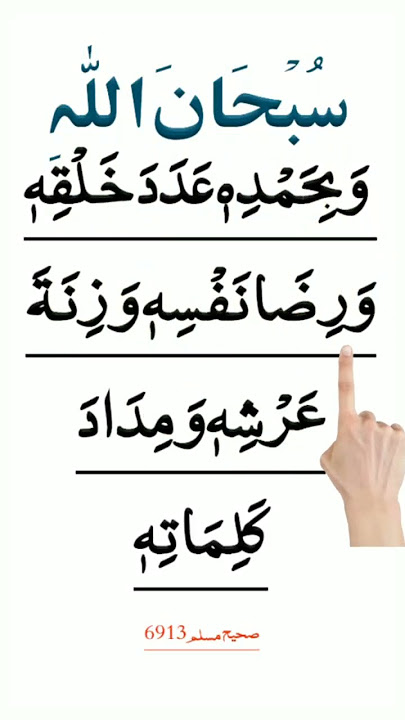 سُبْحَانَ اللّٰہ
وَبِحَمْدِهٖ عَدَدَ خَلْقِهٖ
وَرِضَا نَفْسِهٖ وَزِنَةَ
عَرْشِهٖ وَمِدَادَ
كَلِمَاتِهٖ
صحیح مسلم 6913